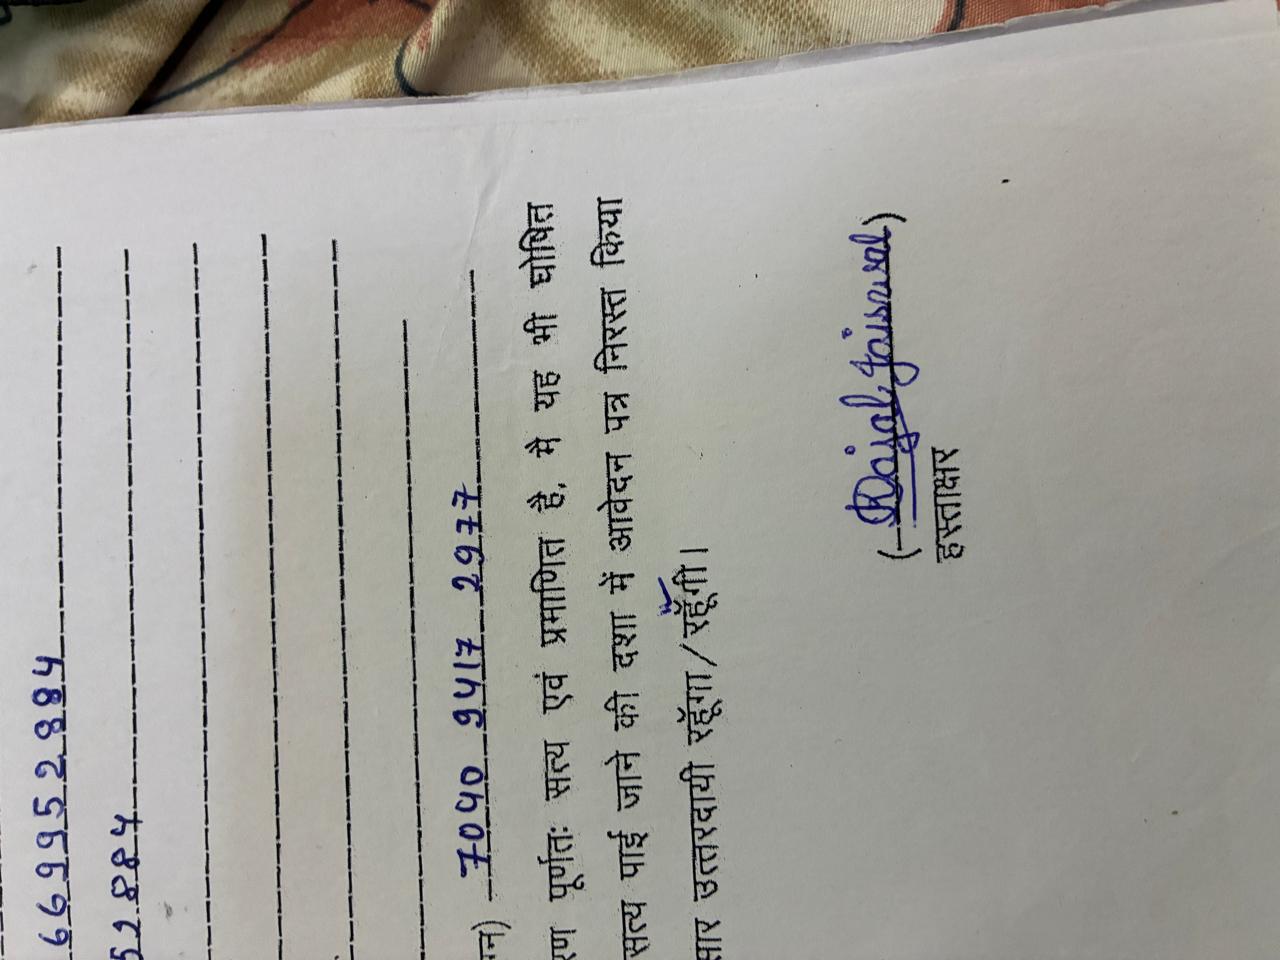 6699952884
52884
न) 7040 9417 2977
पूर्णतः सत्य एवं प्रमाणित है, मै यह भी घोषित
सत्य पाई जाने की दशा में आवेदन पत्र निरस्त किया
उत्तरदायी रहूँगा/रहूँगी।
(Kajal Jaiswal)
हस्ताक्षर